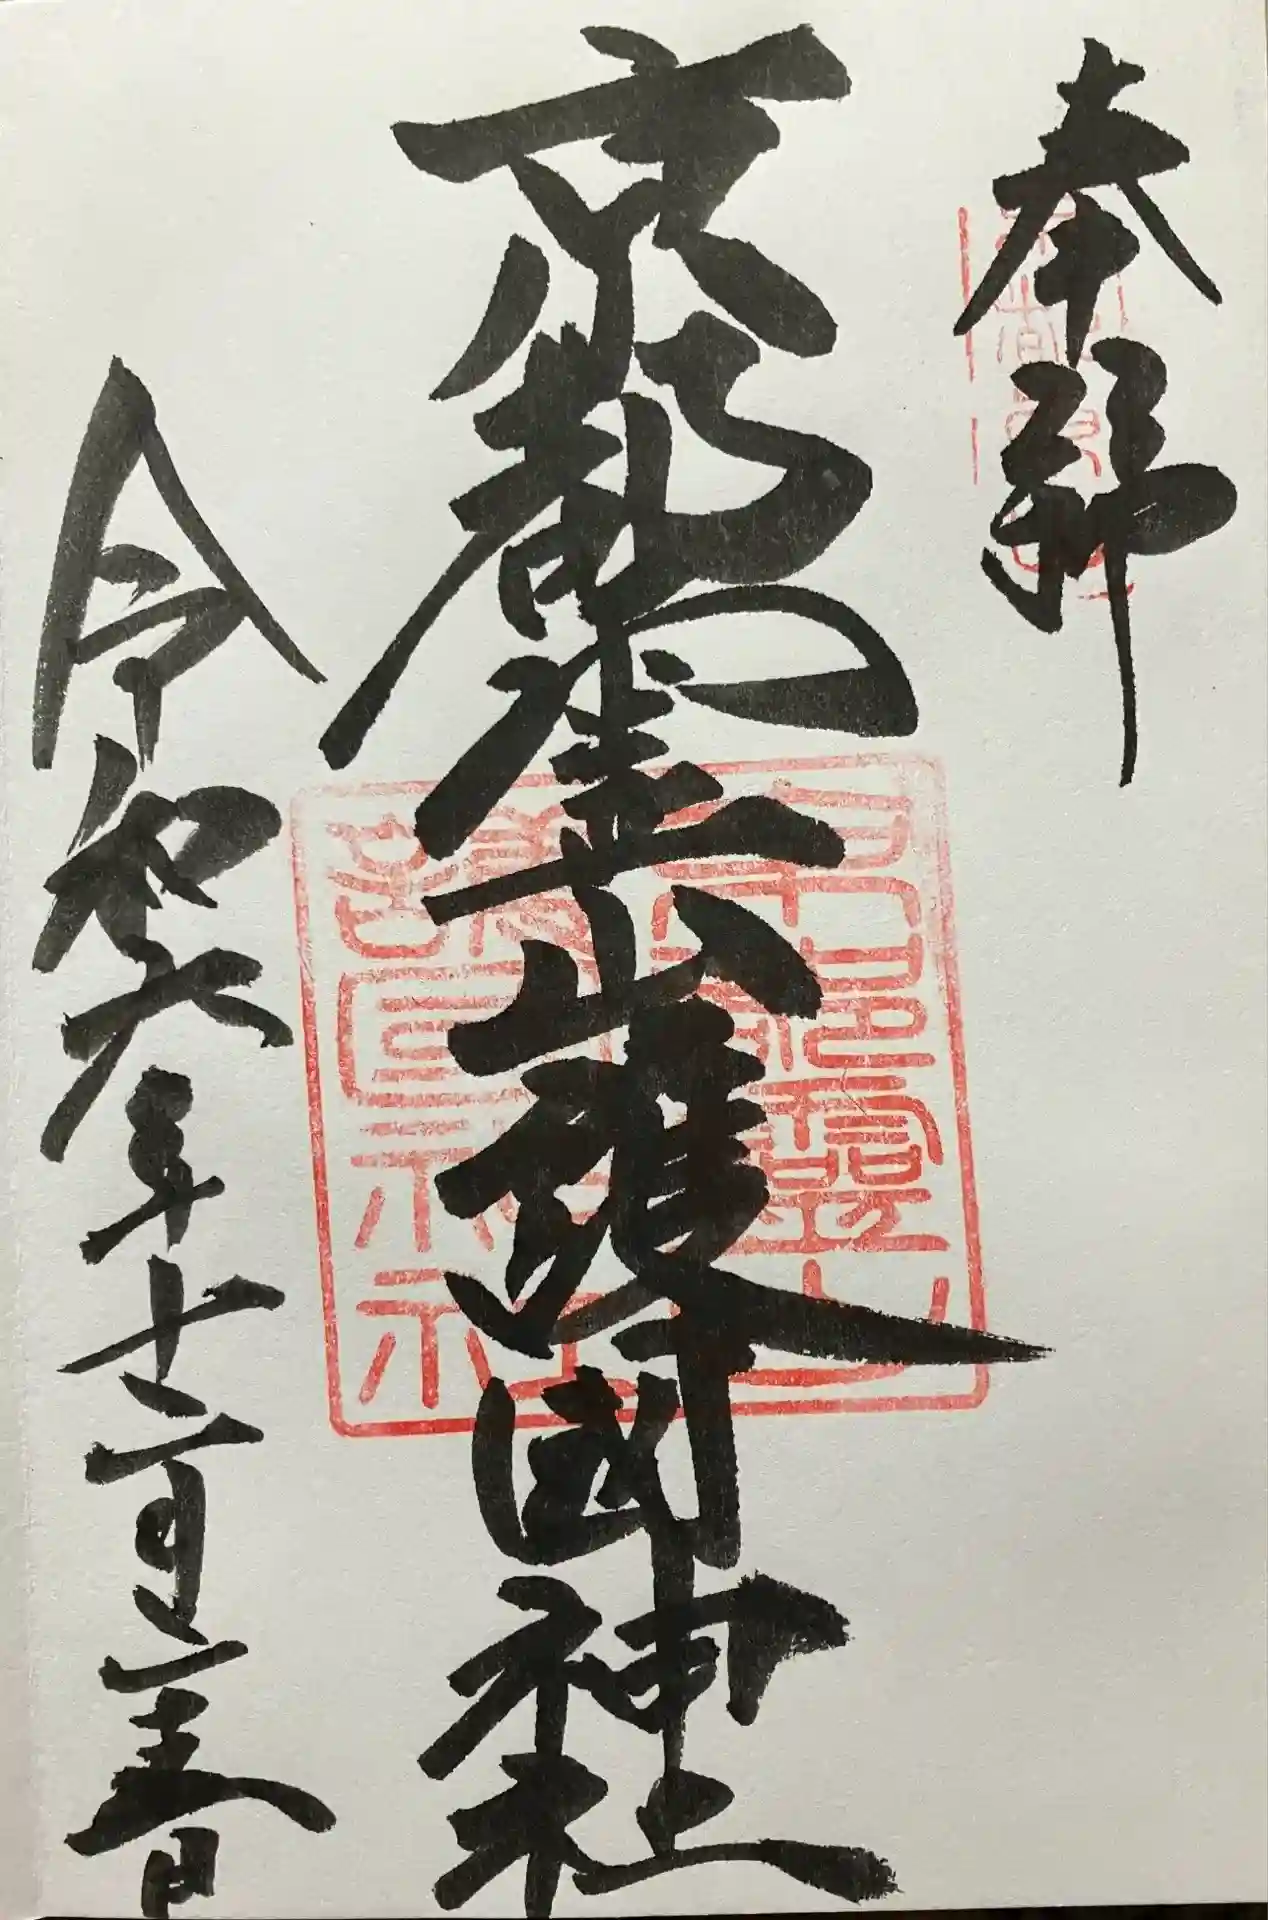 奉拝
京都霊山護國神社
京都靈山
護國神社
令和六年十二月
日